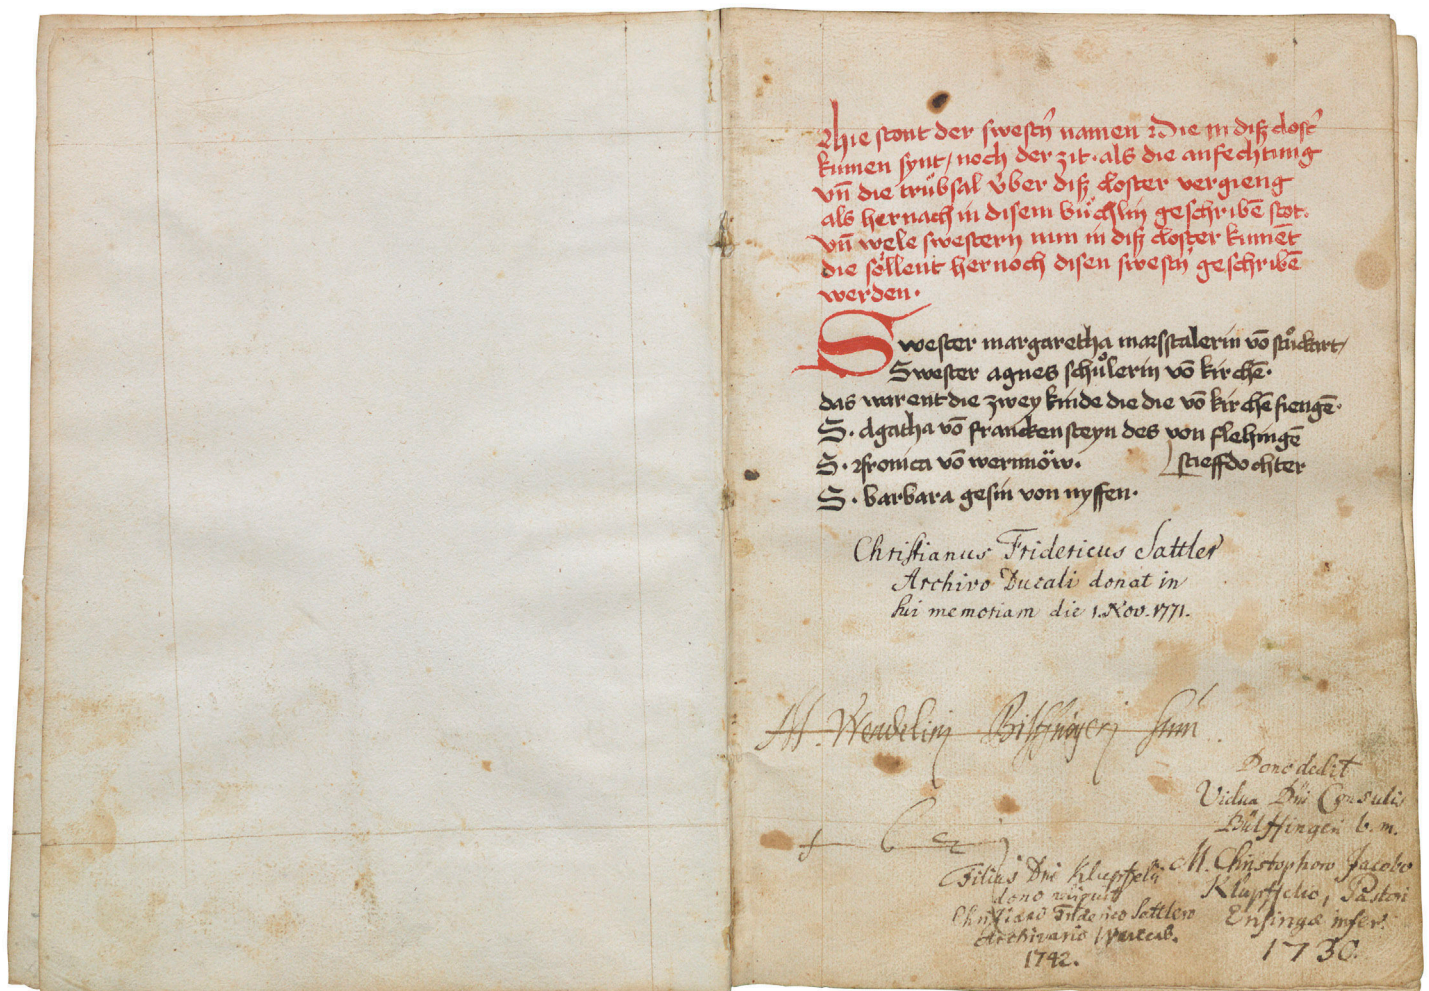 Hie stont der swestn̄ namen Die in diſz clost'
kumen synt / noch der zit · als die anfechtung
vn̄ die trůbsal v̊ber diſz closter vergieng
als hernach in disem bůchlin geschribē stot ·
vn̄ wele swestern nun in diſz closter kumēt
die söllent hernoch disen swestn̄ geschribē
werden ·
Swester margaretha marsstalerin vō stůckart /
Swester agnes schůlerin vō kirchē ·
das warent die zwey kinde die die vō kirchē fiengē ·
S · Agatha vō franckensteyn des von flehingē
S · fronica vō wermöw · stieffdochter
S · barbara gesin von nyffen ·
Christianus Fridericus Sattler
Archivo Ducali donat in
sui memoriam die 1. Nov. 1771.
M. Wendelinj Bilfingerj sum
Dono dedit
Vidua Dni Consulis
Bülffingeri b. m.
M. Christophoro Jacobo
Klupffelio, Pastori
Ensingæ infer.
1730.
Filius Dni Klupffelii
dono
Christiano Friderico Sattlero
Archivario
1742.